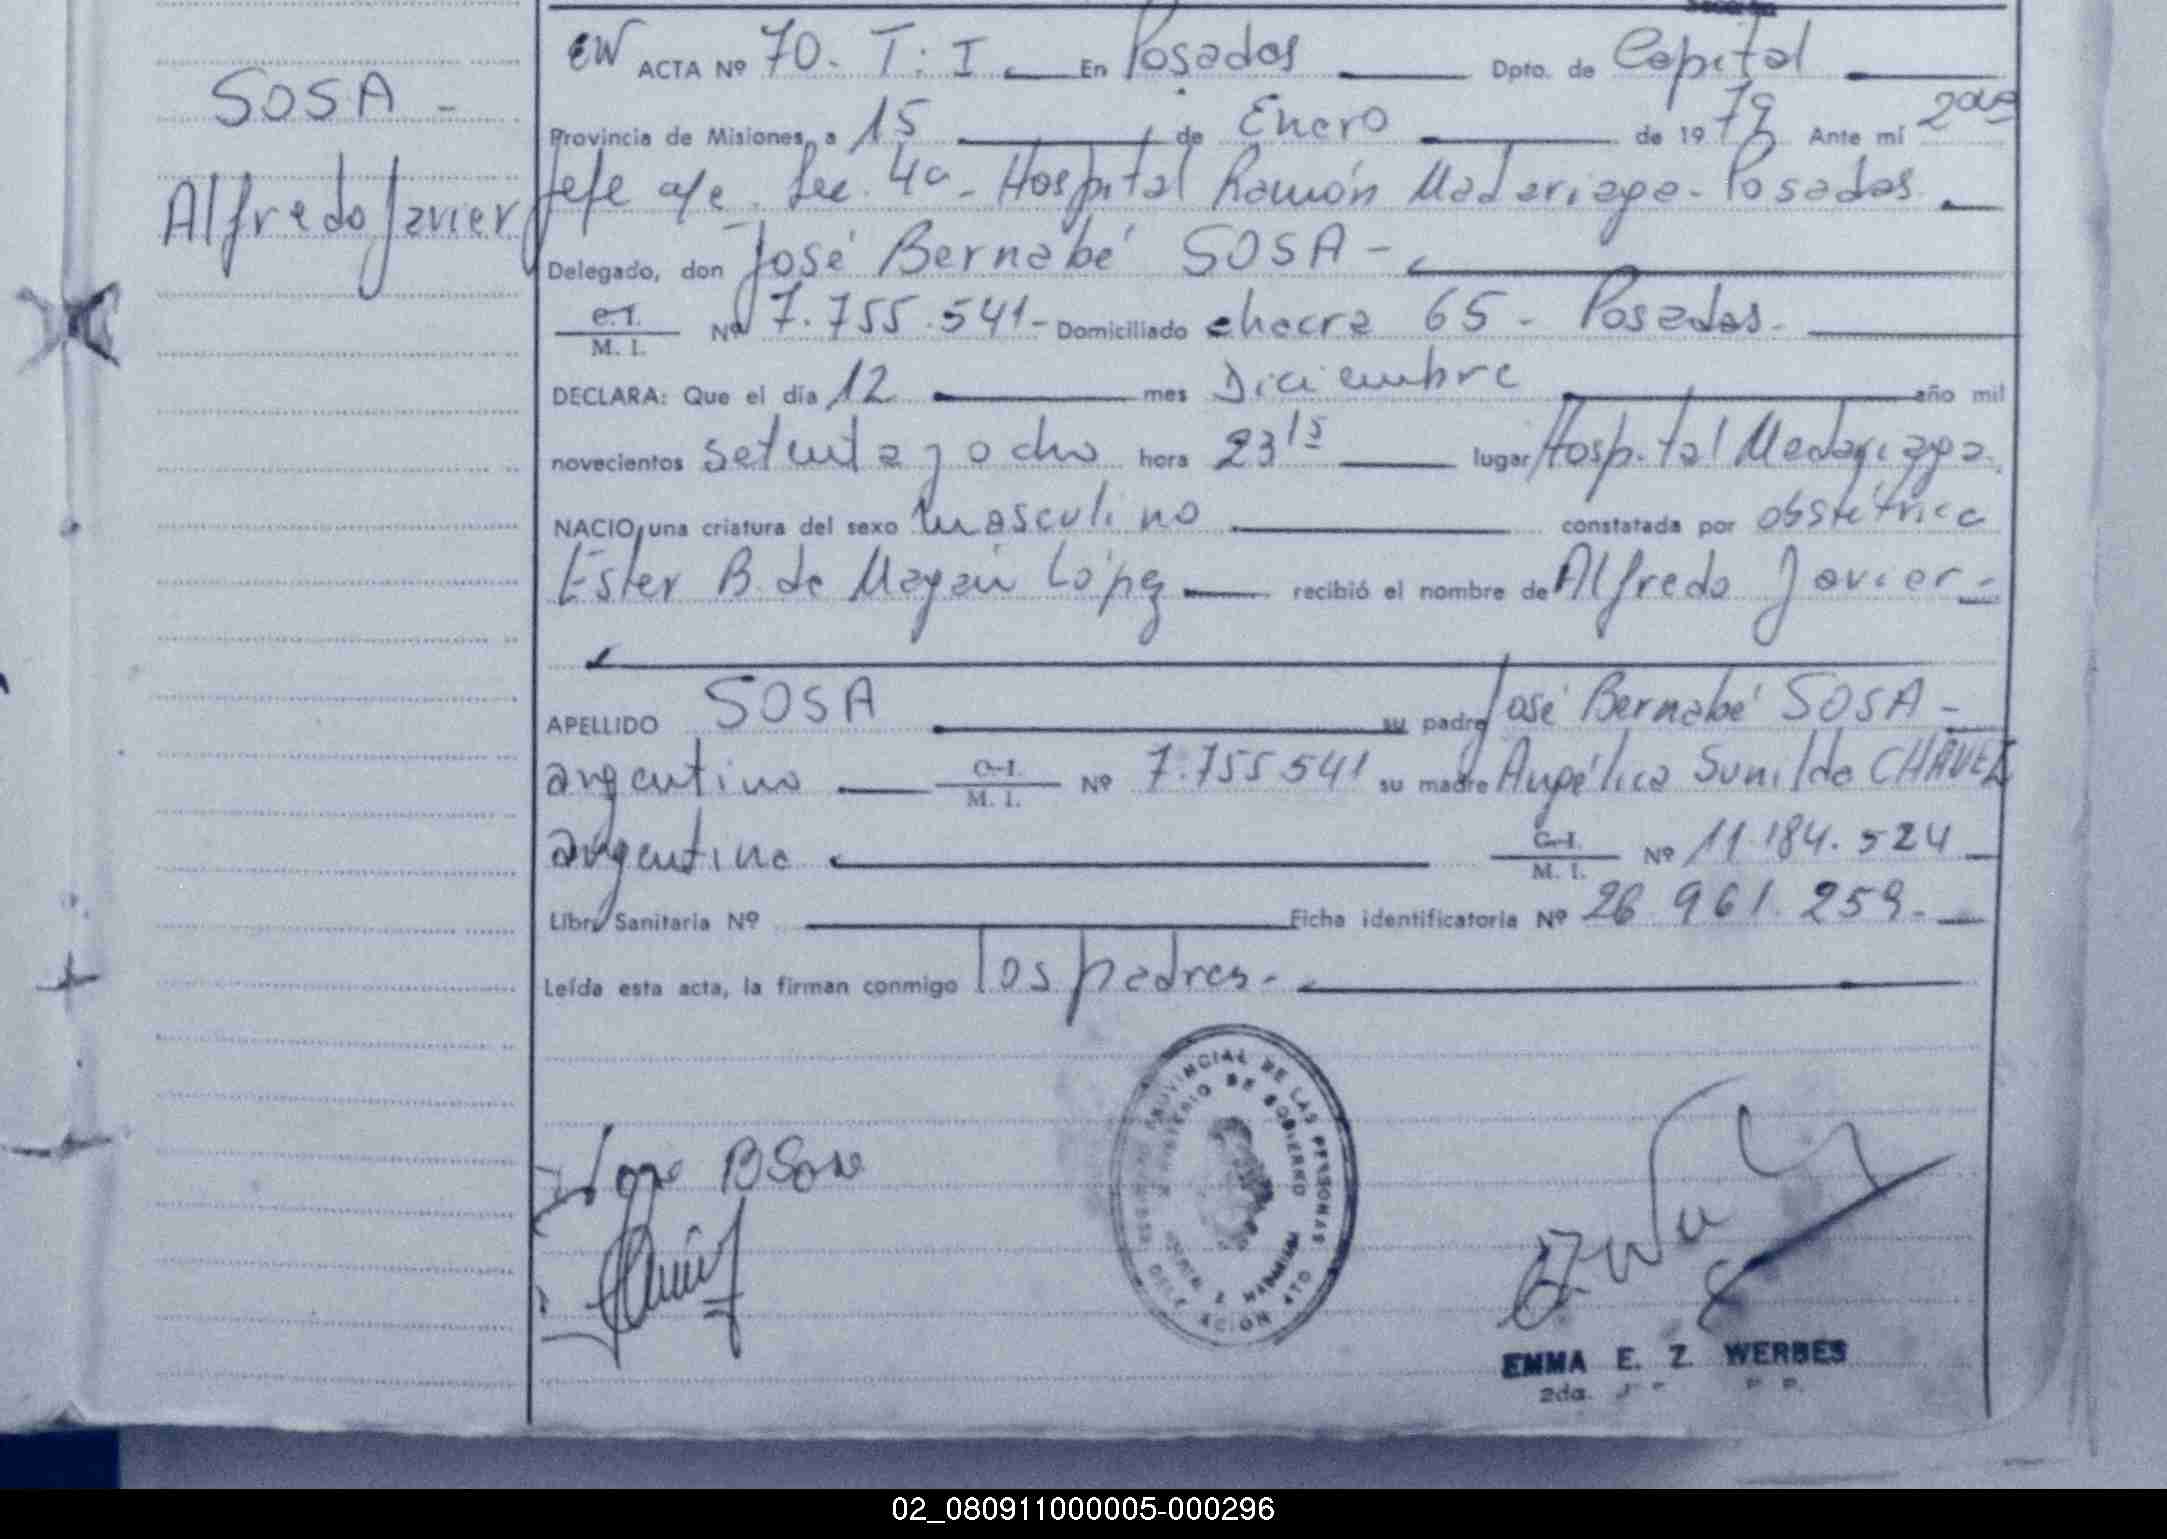 SOSA -
Alfredo Javier
Sección
EW ACTA Nº 70. T: I. En Posadas Dpto. de Capital
Provincia de Misiones, a 15 de Enero de 1979 Ante mí 2da
Jefe a/c. Sec. 4a - Hospital Ramón Madariaga - Posadas
Delegado, don José Bernabé SOSA -
C. I.
M. I. Nº 7.755.541 - Domiciliado chacra 65 - Posadas -
DECLARA: Que el día 12 mes Diciembre año mil
novecientos setenta y ocho hora 23 15 lugar Hospital Madariaga.
NACIO, una criatura del sexo masculino constatada por obstétrica
Ester B. de Mayeu López recibió el nombre de Alfredo Javier -
APELLIDO SOSA su padre José Bernabé SOSA -
argentino C. I. M. I. Nº 7.755.541 su madre Angélica Sunilda CHAVEZ
argentina C. I. M. I. Nº 11.184.524
Libr. Sanitaria Nº Ficha identificatoria Nº 26.961.259 -
Leída esta acta, la firman conmigo los padres -
PROVINCIAL DE LAS PERSONAS
MINISTERIO DE GOBIERNO
Jose B Sosa
EMMA E. Z. WERBES
2da.
02_080911000005-000296